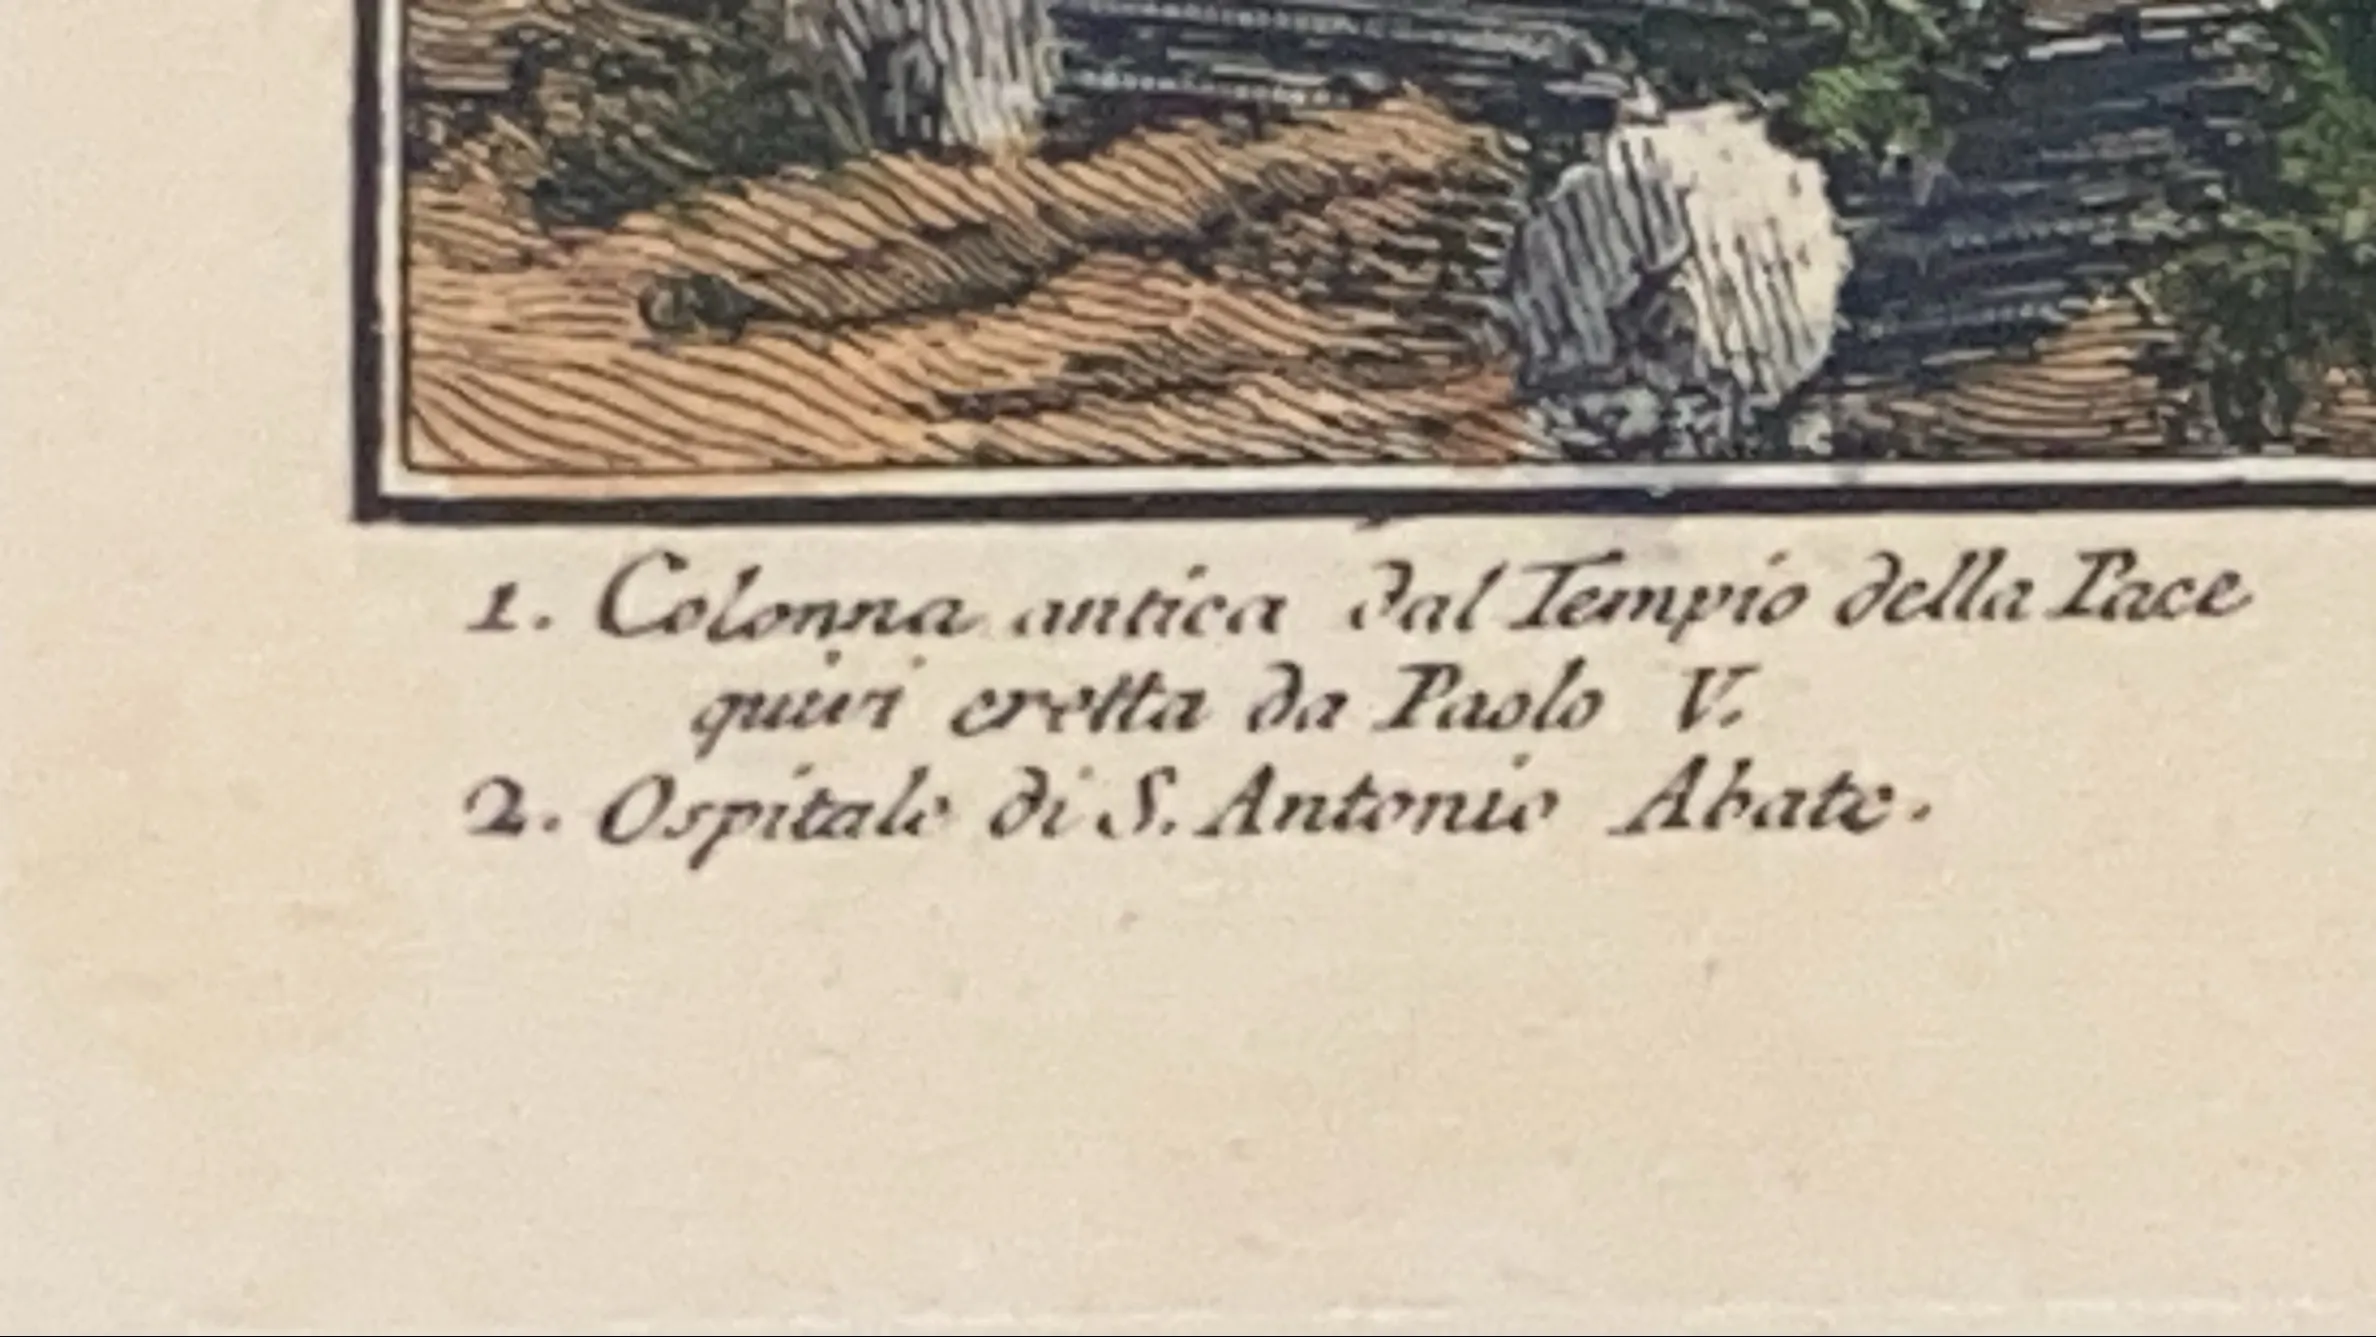 1. Colonna antica dal Tempio della Pace
quivi eretta da Paolo V.
2. Ospitale di S. Antonio Abate.